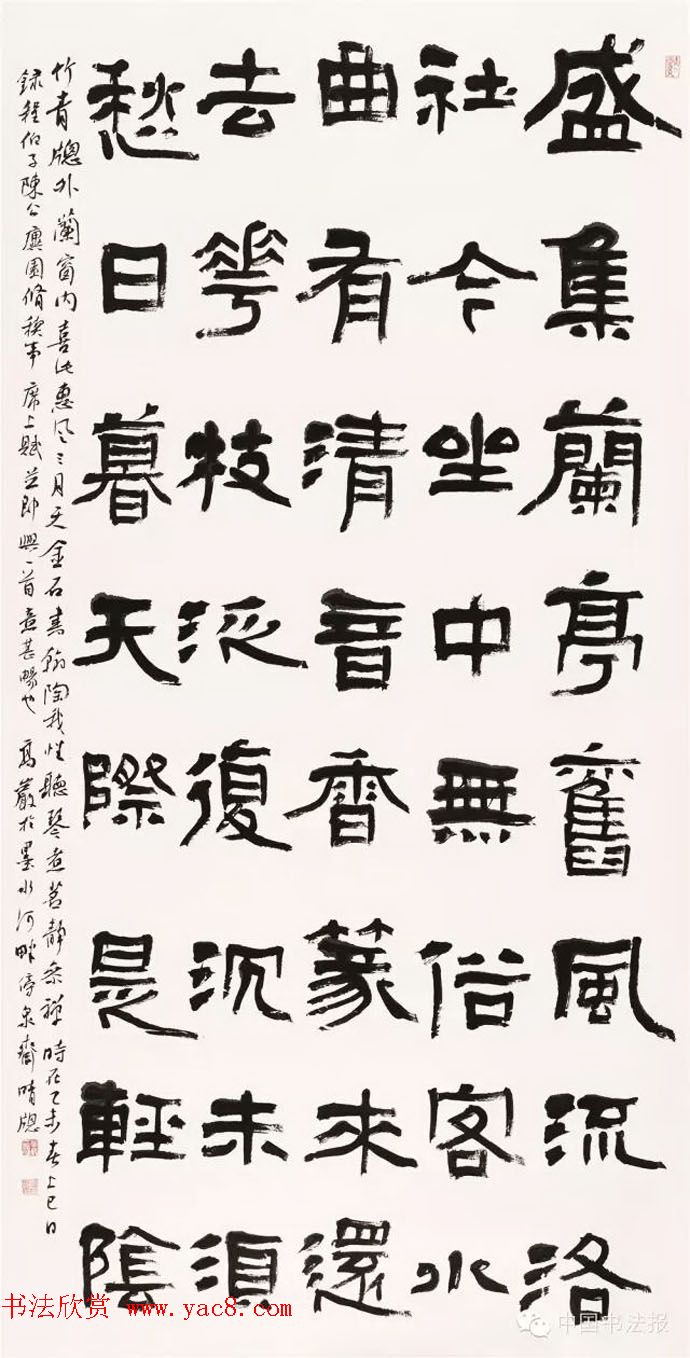 盛集蘭亭舊風流洛
社今坐中無俗客水
曲有清音香篆來還
去花枝泛復沉未須
愁日暮天際是輕陰
竹青牕外蘭窗内喜沐惠風三月天金石書翰陶我性聽琴煮茗靜參禪時在乙未春上巳日
錄程伯子陳公廙園脩禊事席上賦並即興一首意甚暢也高嚴於墨水河畔泉齋晴牕
书法欣赏 www.yac8.com
中国书法报